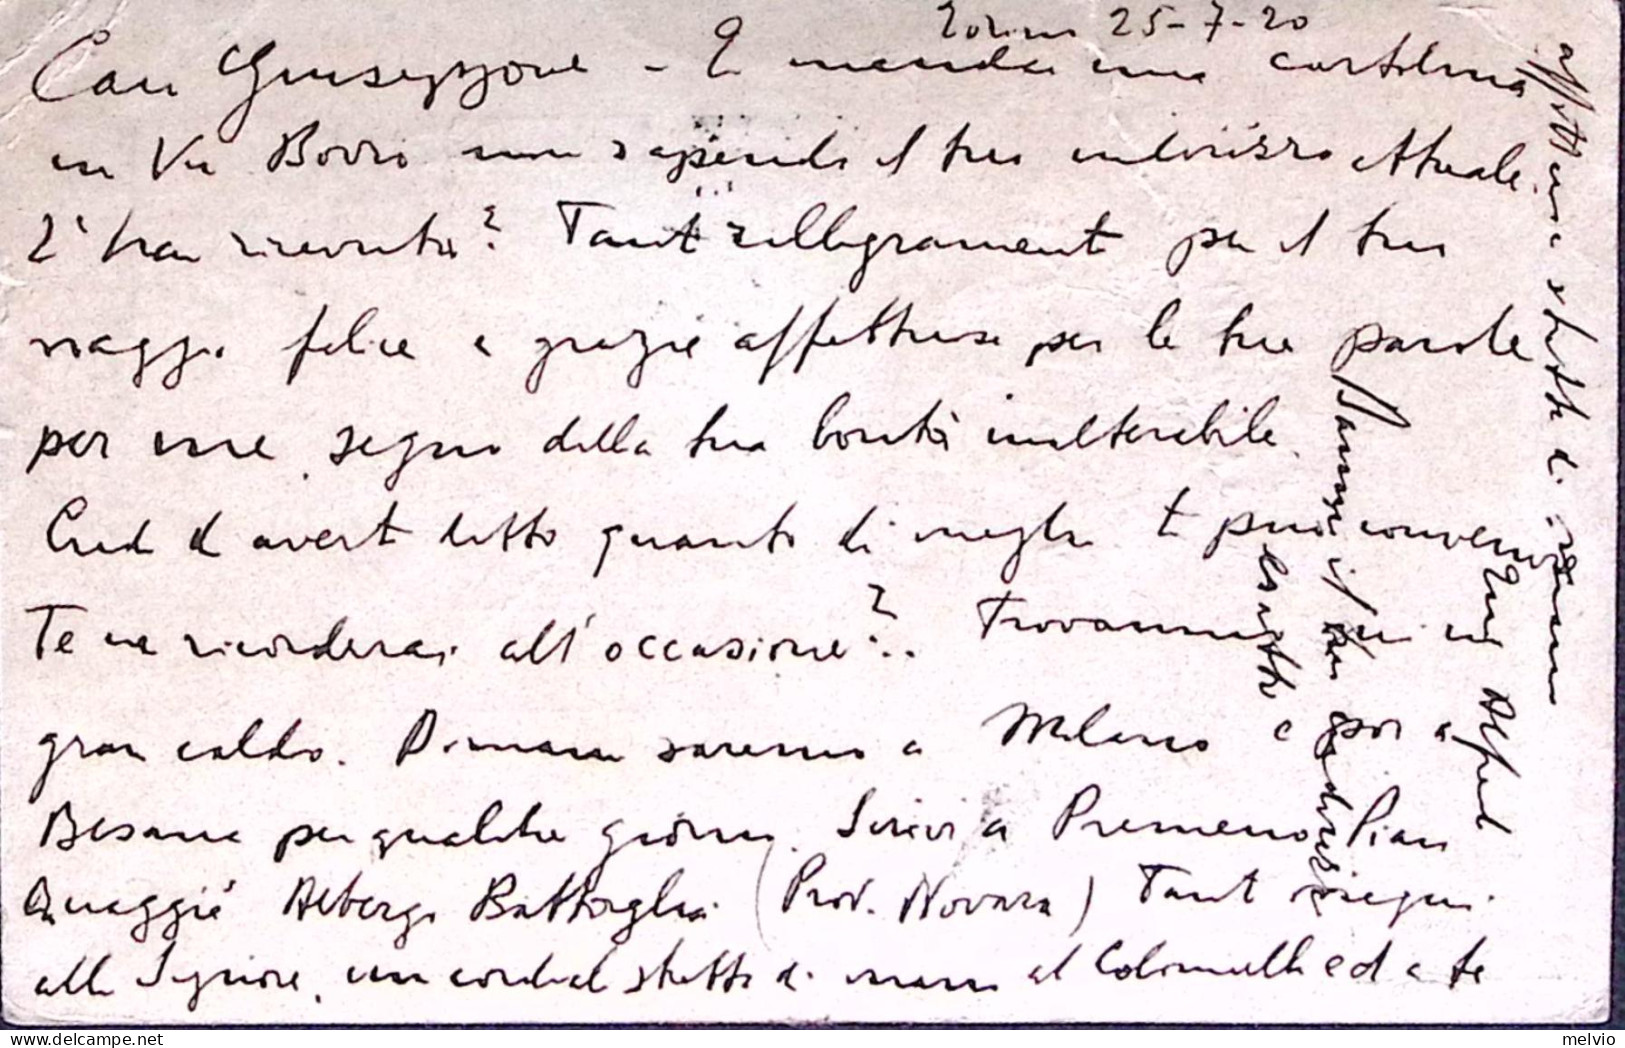 Torino 25-7-20
Caro Giuseppone - Ti mandai una cartolina
in Via Bovio non sapendo il tuo indirizzo attuale.
L'hai ricevuta? Tanti rallegramenti per il tuo
viaggio felice e grazie affettuose per le tue parole
per me, segno della tua bontà inalterabile.
Credo d'averti detto quanto di meglio ti può convenire
Te ne ricorderai all'occasione?.. Trovammo qui un
gran caldo. Domani saremo a Milano e poi a
Besana per qualche giorno. Scrivi a Premeno Pian
Quaggié Albergo Battaglia (Prov. Novara) Tanti ossequi
alla Signora, un cordial stretta di mano al Colomulli ed a te
affettuosa stretta di mano
Tuo Alfred
Dammi il tuo indirizzo
esatto